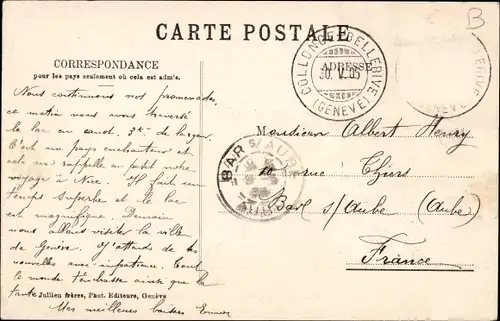 CARTE POSTALE
CORRESPONDANCE
pour les pays seulement où cela est admis.
ADRESSE
COLLONGE-BELLERIVE
30. V. 05
(GENÈVE)
GENÈVE
BAR S/ AUBE
AUBE
Nous continuons nos promenades,
ce matin nous avons traversé
le lac en canot. 3 k. de largeur
C'est un pays enchanteur et
cela me rappelle un petit notre
voyage à Nice. Il fait un
temps superbe et le lac
est magnifique. Demain
nous allons visiter la ville
de Genève. J'attends de tes
nouvelles avec impatience. Tout
le monde t'embrasse ainsi que la
tante
Mes meilleurs baisers
Jullien frères, Phot. Editeurs, Genève
Monsieur Albert Henry
rue Thiers
Bar s/Aube (Aube)
France